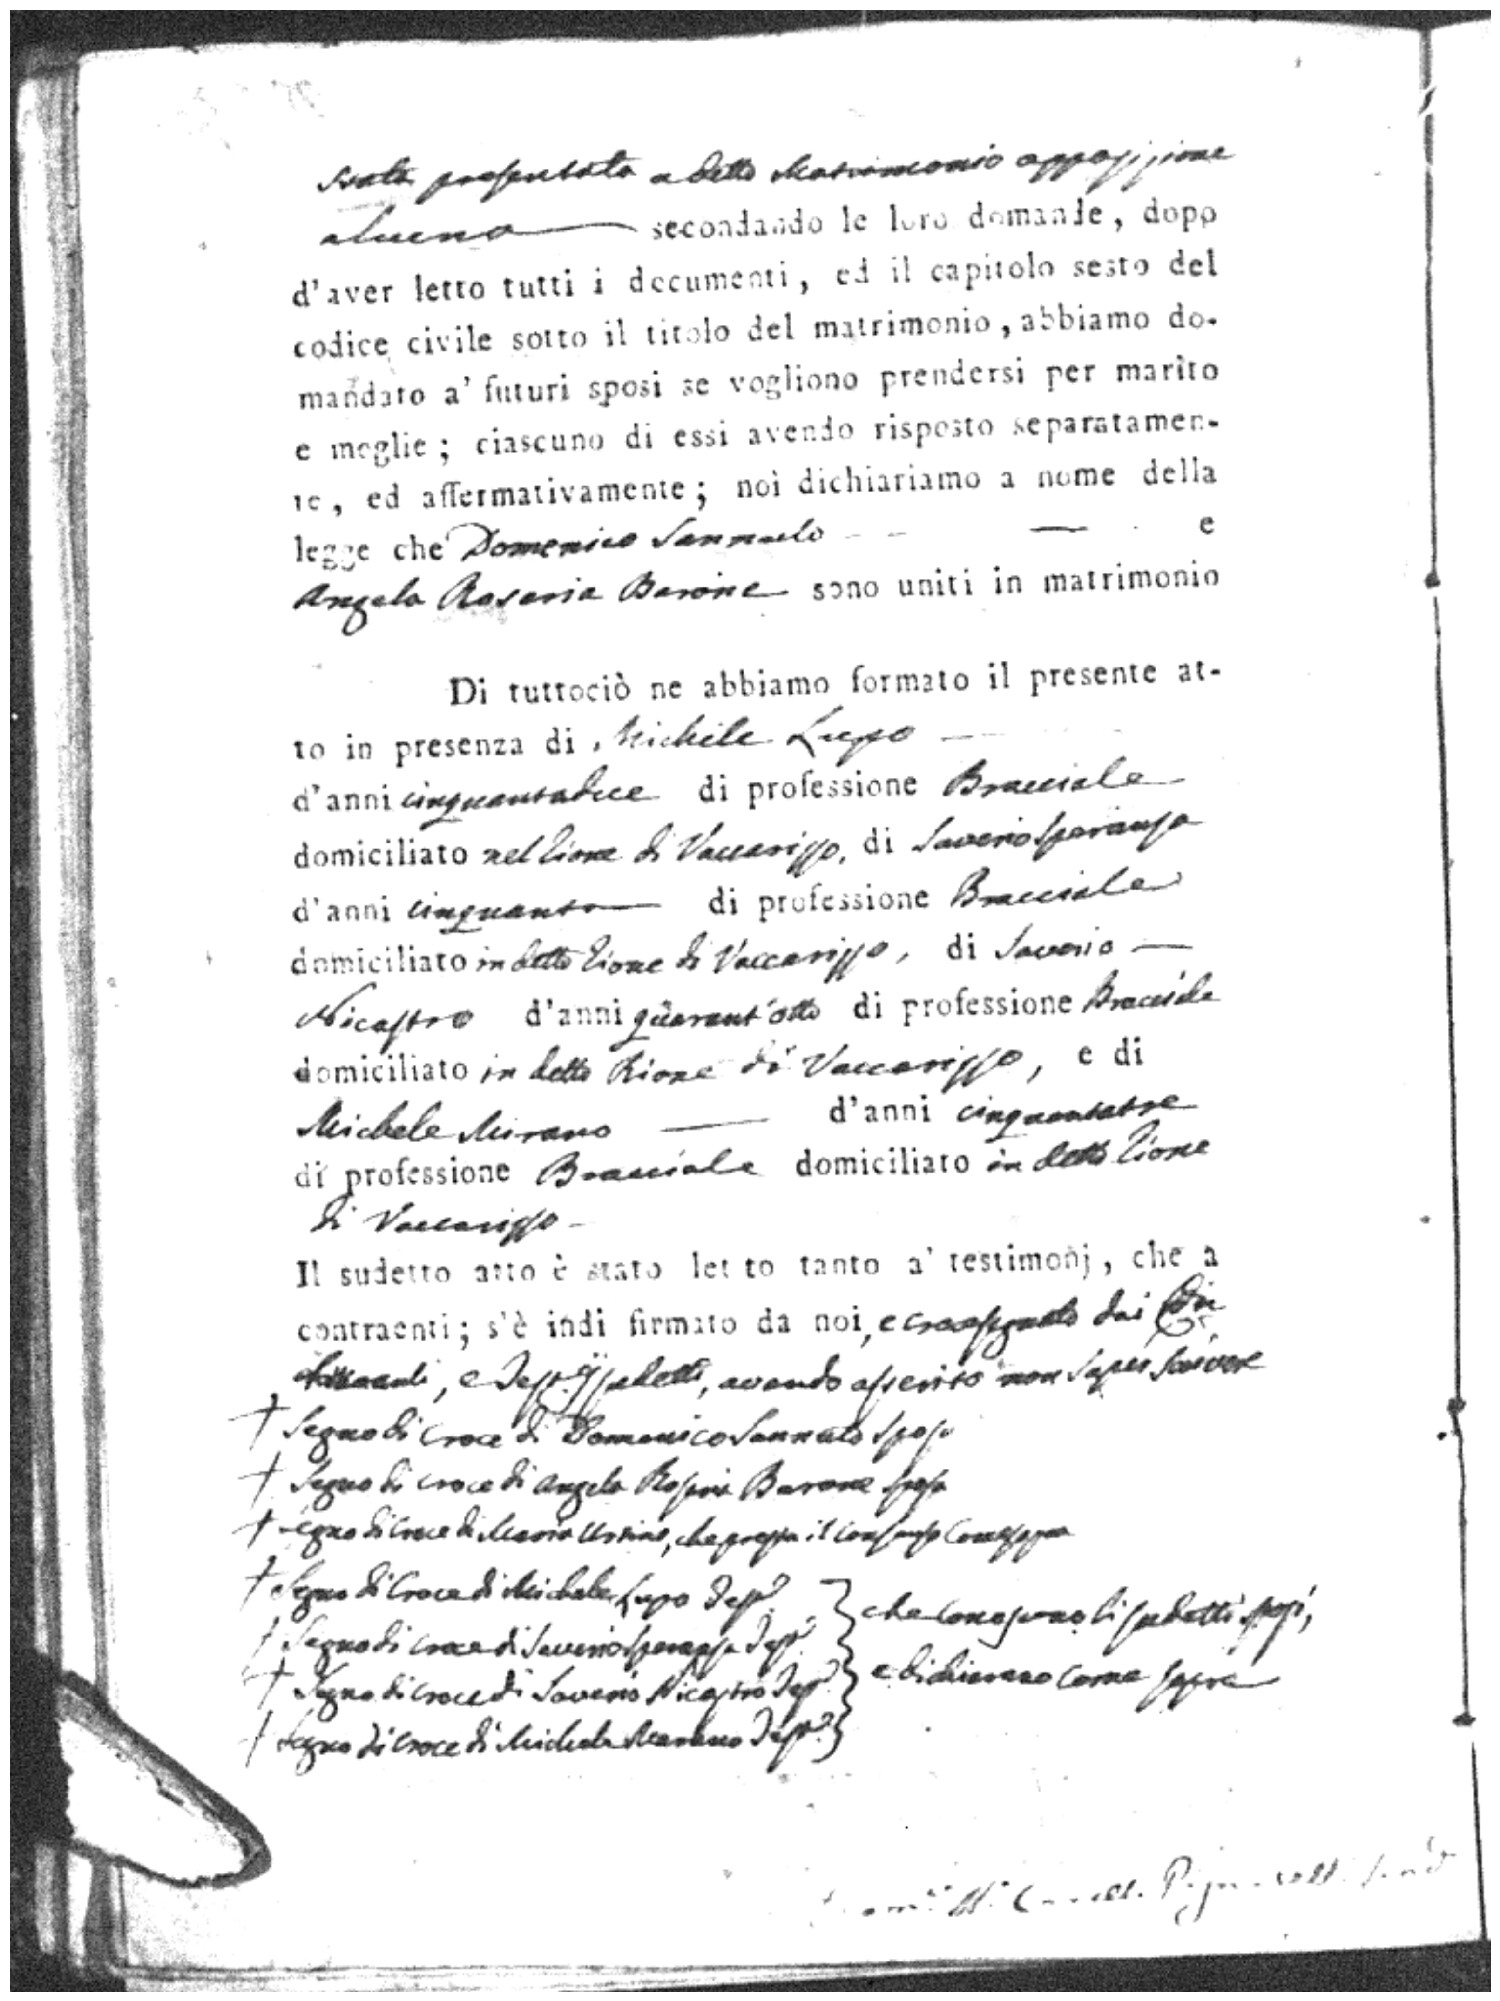 stata presentata a detto Matrimonio opposizione
alcuna secondando le loro domande, dopo
d'aver letto tutti i documenti, ed il capitolo sesto del
codice civile sotto il titolo del matrimonio, abbiamo do-
mandato a' futuri sposi se vogliono prendersi per marito
e moglie; ciascuno di essi avendo risposto separatamen-
te, ed affermativamente; noi dichiariamo a nome della
legge che Domenico Sannuto — e
Angela Rosaria Barone sono uniti in matrimonio
Di tuttociò ne abbiamo formato il presente at-
to in presenza di Michele Lupo —
d'anni cinquantadue di professione Bracciale
domiciliato nel Rione di Vaccarizzo, di Saverio Speranza
d'anni cinquanta di professione Bracciale
domiciliato in detto Rione di Vaccarizzo, di Saverio —
Nicastro d'anni quarant'otto di professione Bracciale
domiciliato in detto Rione di Vaccarizzo, e di
Michele Mirano — d'anni cinquantatre
di professione Bracciale domiciliato in detto Rione
di Vaccarizzo -
Il sudetto atto è stato letto tanto a' testimonj, che a
contraenti; s'è indi firmato da noi, e crocesegnato dai
, e sudetti, avendo asserito non saper scrivere
† Segno di Croce di Domenico Sannuto Sposo
† Segno di Croce di Angela Rosaria Barone sposa
† Segno di Croce di Maria Ursino, che presta il consenso come sopra
† Segno di Croce di Michele Lupo Test.º
† Segno di Croce di Saverio Speranza Test.º
che conoscono li sudetti sposi,
† Segno di Croce di Saverio Nicastro Test.º
e dichiarano come sopra
† Segno di Croce di Michele Marano Test.º